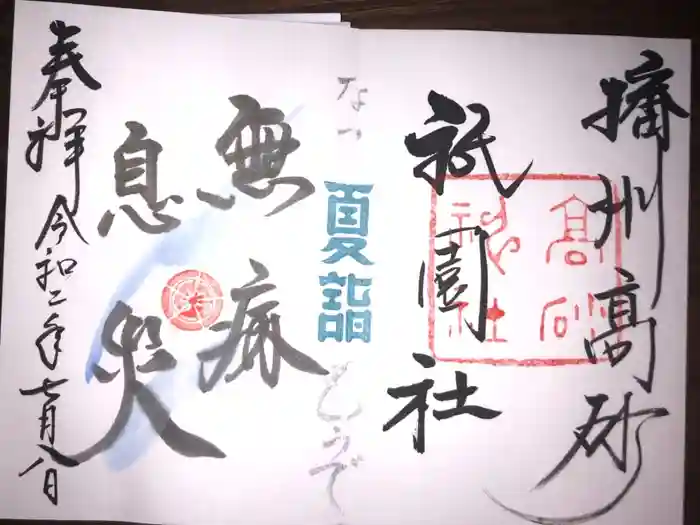 播州高砂
祇園社
高砂
祇園社
なつ
夏詣
もうで
無病
息災
奉拝
令和二年七月八日